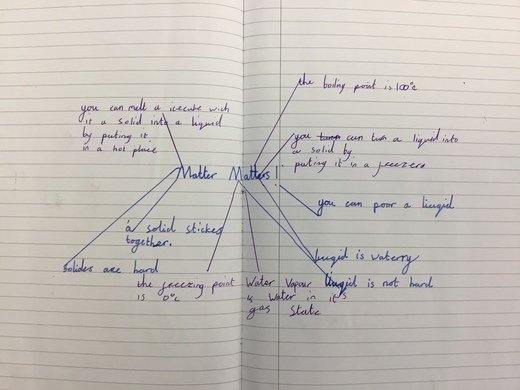 the boiling point is 100°c
you can melt a icecube wich
it a solid into a liquid
by puting it
in a hot place
you can turn a liquid into
a solid by
puting it in a freezers
Matter Matters!
you can poor a liugid
a solid sticks
together.
liugid is waterry
solides are hard
the freezing point
is 0°c
Water Vapour
is Water in it's
gas State
liugid is not hard